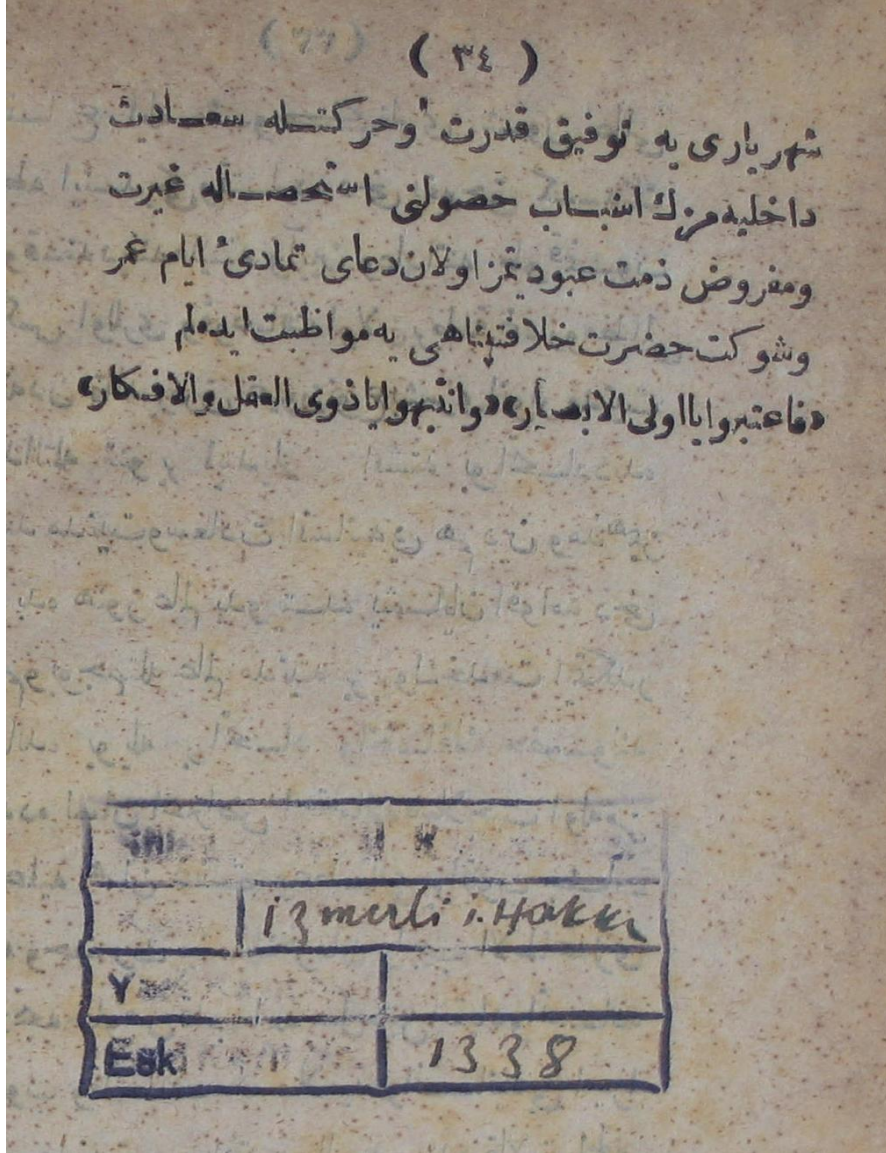 ( ٣٤ )
شهریاری یه توفیق قدرت وحرکتله سعادت
داخلیه مزك اسباب حصولنی استحصاله غیرت
ومفروض ذمت عبودیتمز اولان دعای تمادئ ایام عمر
وشوکت حضرت خلافتپناهی یه مواظبت ایده لم
«فاعتبروا یااولی الابصار» «وانتبهوا یاذوی العقل والافکار»
izmirli i. Hakkı
Y
Eski
1338